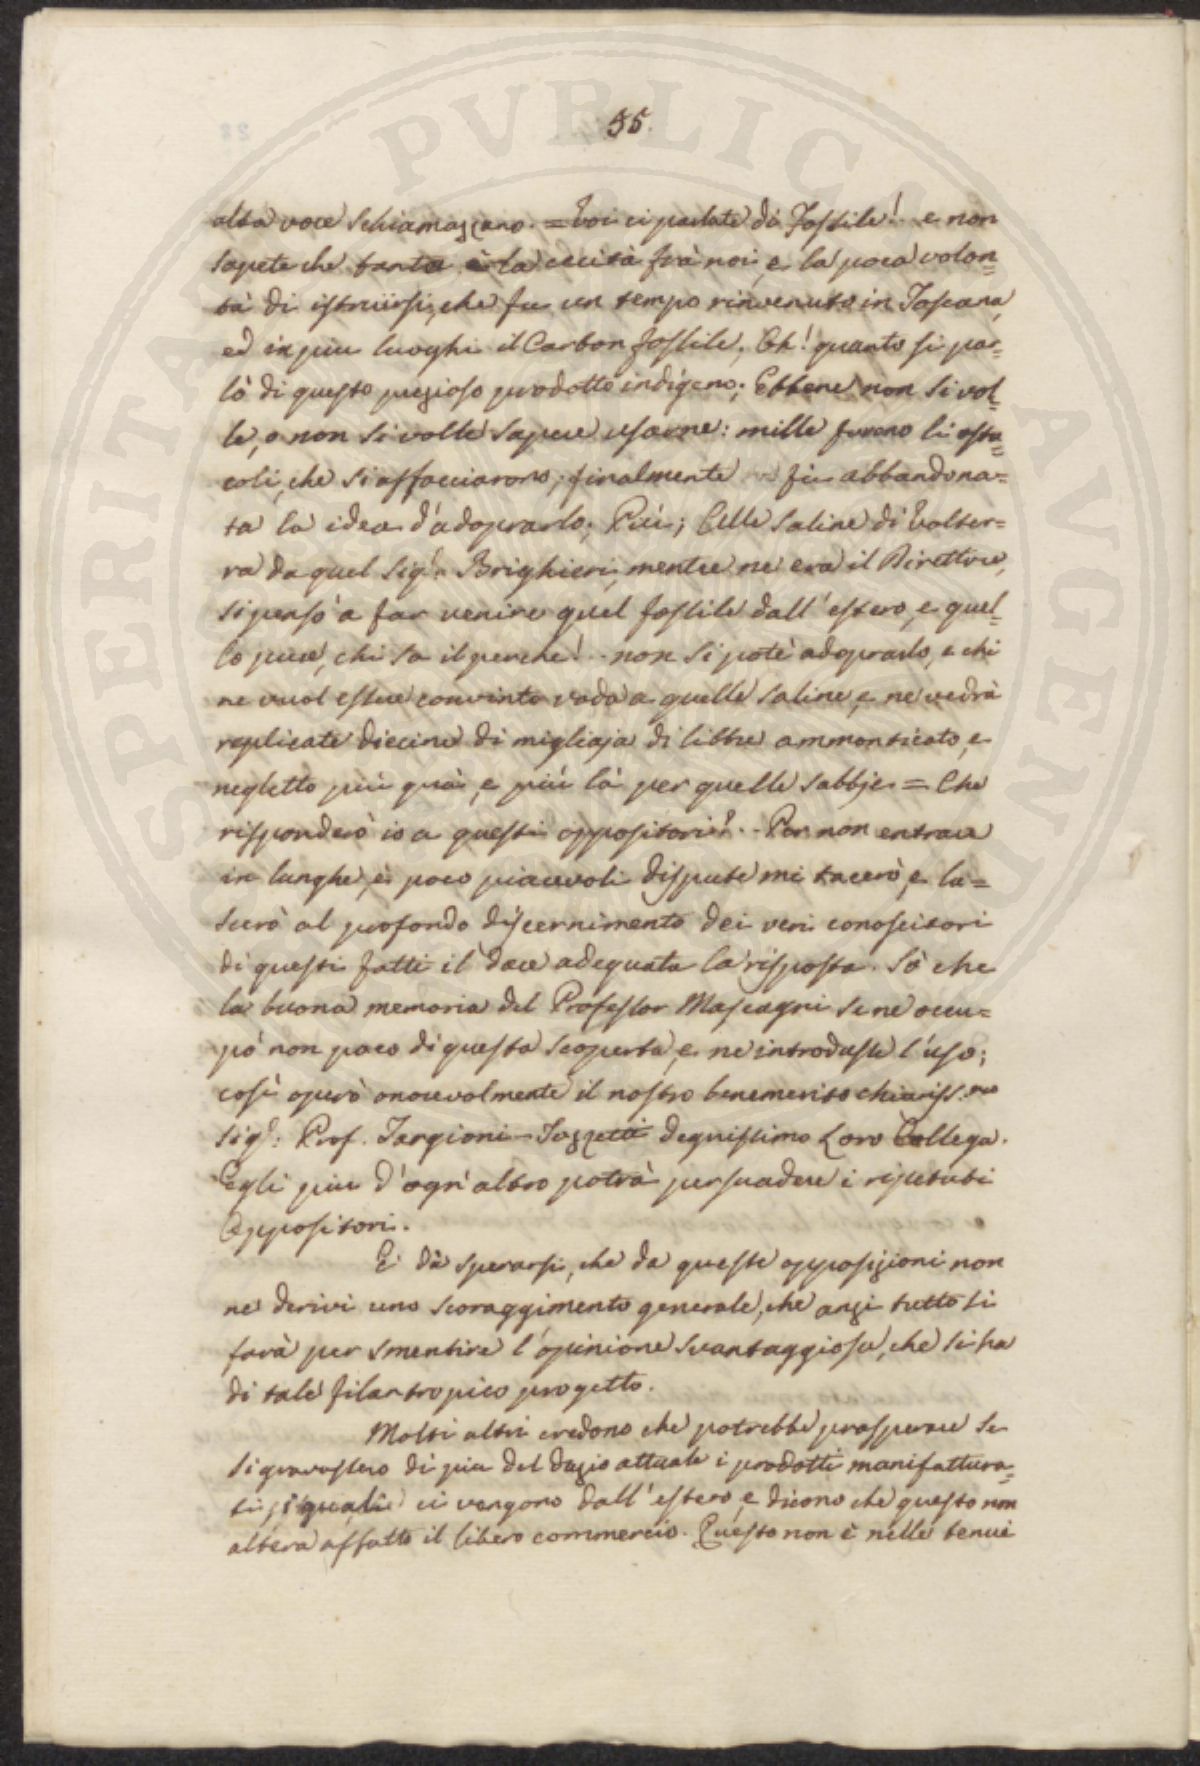 55.
alta voce schiamazzano. = Voi ci parlate di Fossile! e non
sapete che tanta è la cecità frà noi, e la poca volon=
tà di istruirsi, che fu un tempo rinvenuto in Toscana,
ed in piu luoghi il Carbon fossile. Oh! quanto si par=
lò di questo prezioso prodotto indigeno; Ebbene non si vol=
le, o non si volle sapere usarne: mille furono li osta=
coli, che si affacciarono; finalmente fù abbandona=
ta la idea d'adoprarlo; Più; Alle Saline di Volter=
ra da quel Sigr. Brighieri, mentre ne era il Direttore,
si pensò a far venire quel fossile dall'estero, e quel=
lo pure, chi sa il perche!.. non si potè adoprarlo, e chi
ne vuol essere convinto vada a quelle Saline, e ne vedrà
replicate diecine di migliaja di libbre ammonticato, e
negletto più quà, e più là per quelle sabbje. = Che
risponderò io a questi oppositori?.. Per non entrare
in lunghe, e poco piacevoli dispute mi tacerò, e la=
scerò al profondo discernimento dei veri conoscitori
di questi fatti il dare adequata la risposta. Sò che
la buona memoria del Professor Mascagni se ne occu=
pò non poco di questa scoperta, e ne introdusse l'uso;
così operò onorevolmente il nostro benemerito chiariss.mo
Sigr: Prof. Targioni-Tozzetti degnissimo Loro Collega.
Egli piu d'ogn'altro potrà persuadere i ripetuti
Oppositori.
E' dà sperarsi, che da queste opposizioni non
ne derivi uno scoraggimento generale, che anzi tutto si
farà per smentire l'opinione svantaggiosa, che si ha
di tale filantropico progetto.
Molti altri credono che potrebbe prosperare se
si gravassero di piu del dazio attuale i prodotti manifattura=
ti, i quali ci vengono dall'estero, e dicono che questo non
altera affatto il libero commercio. Questo non è nelle tenui
SPERITATI PVBLICAE AVGENDAE